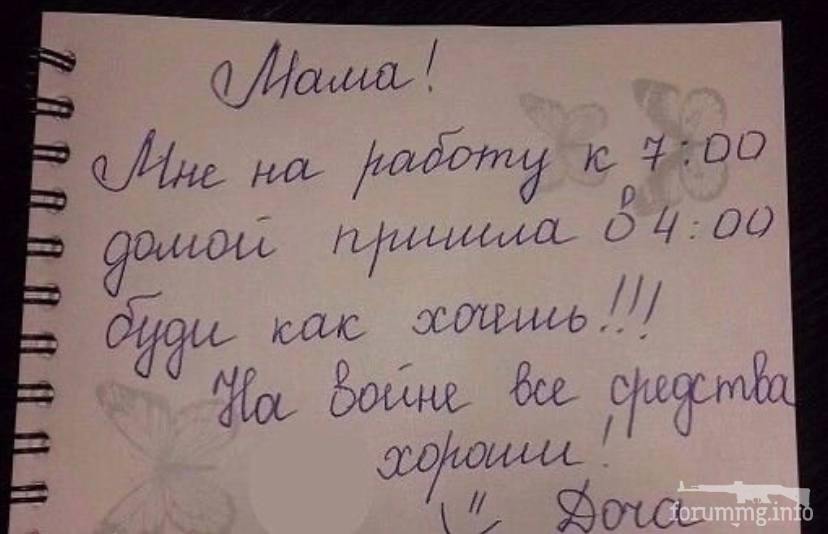 Мама!
Мне на работу к 7:00
домой пришла в 4:00
буди как хочешь!!!
На войне все средства
хороши!
Доча
forummg.info